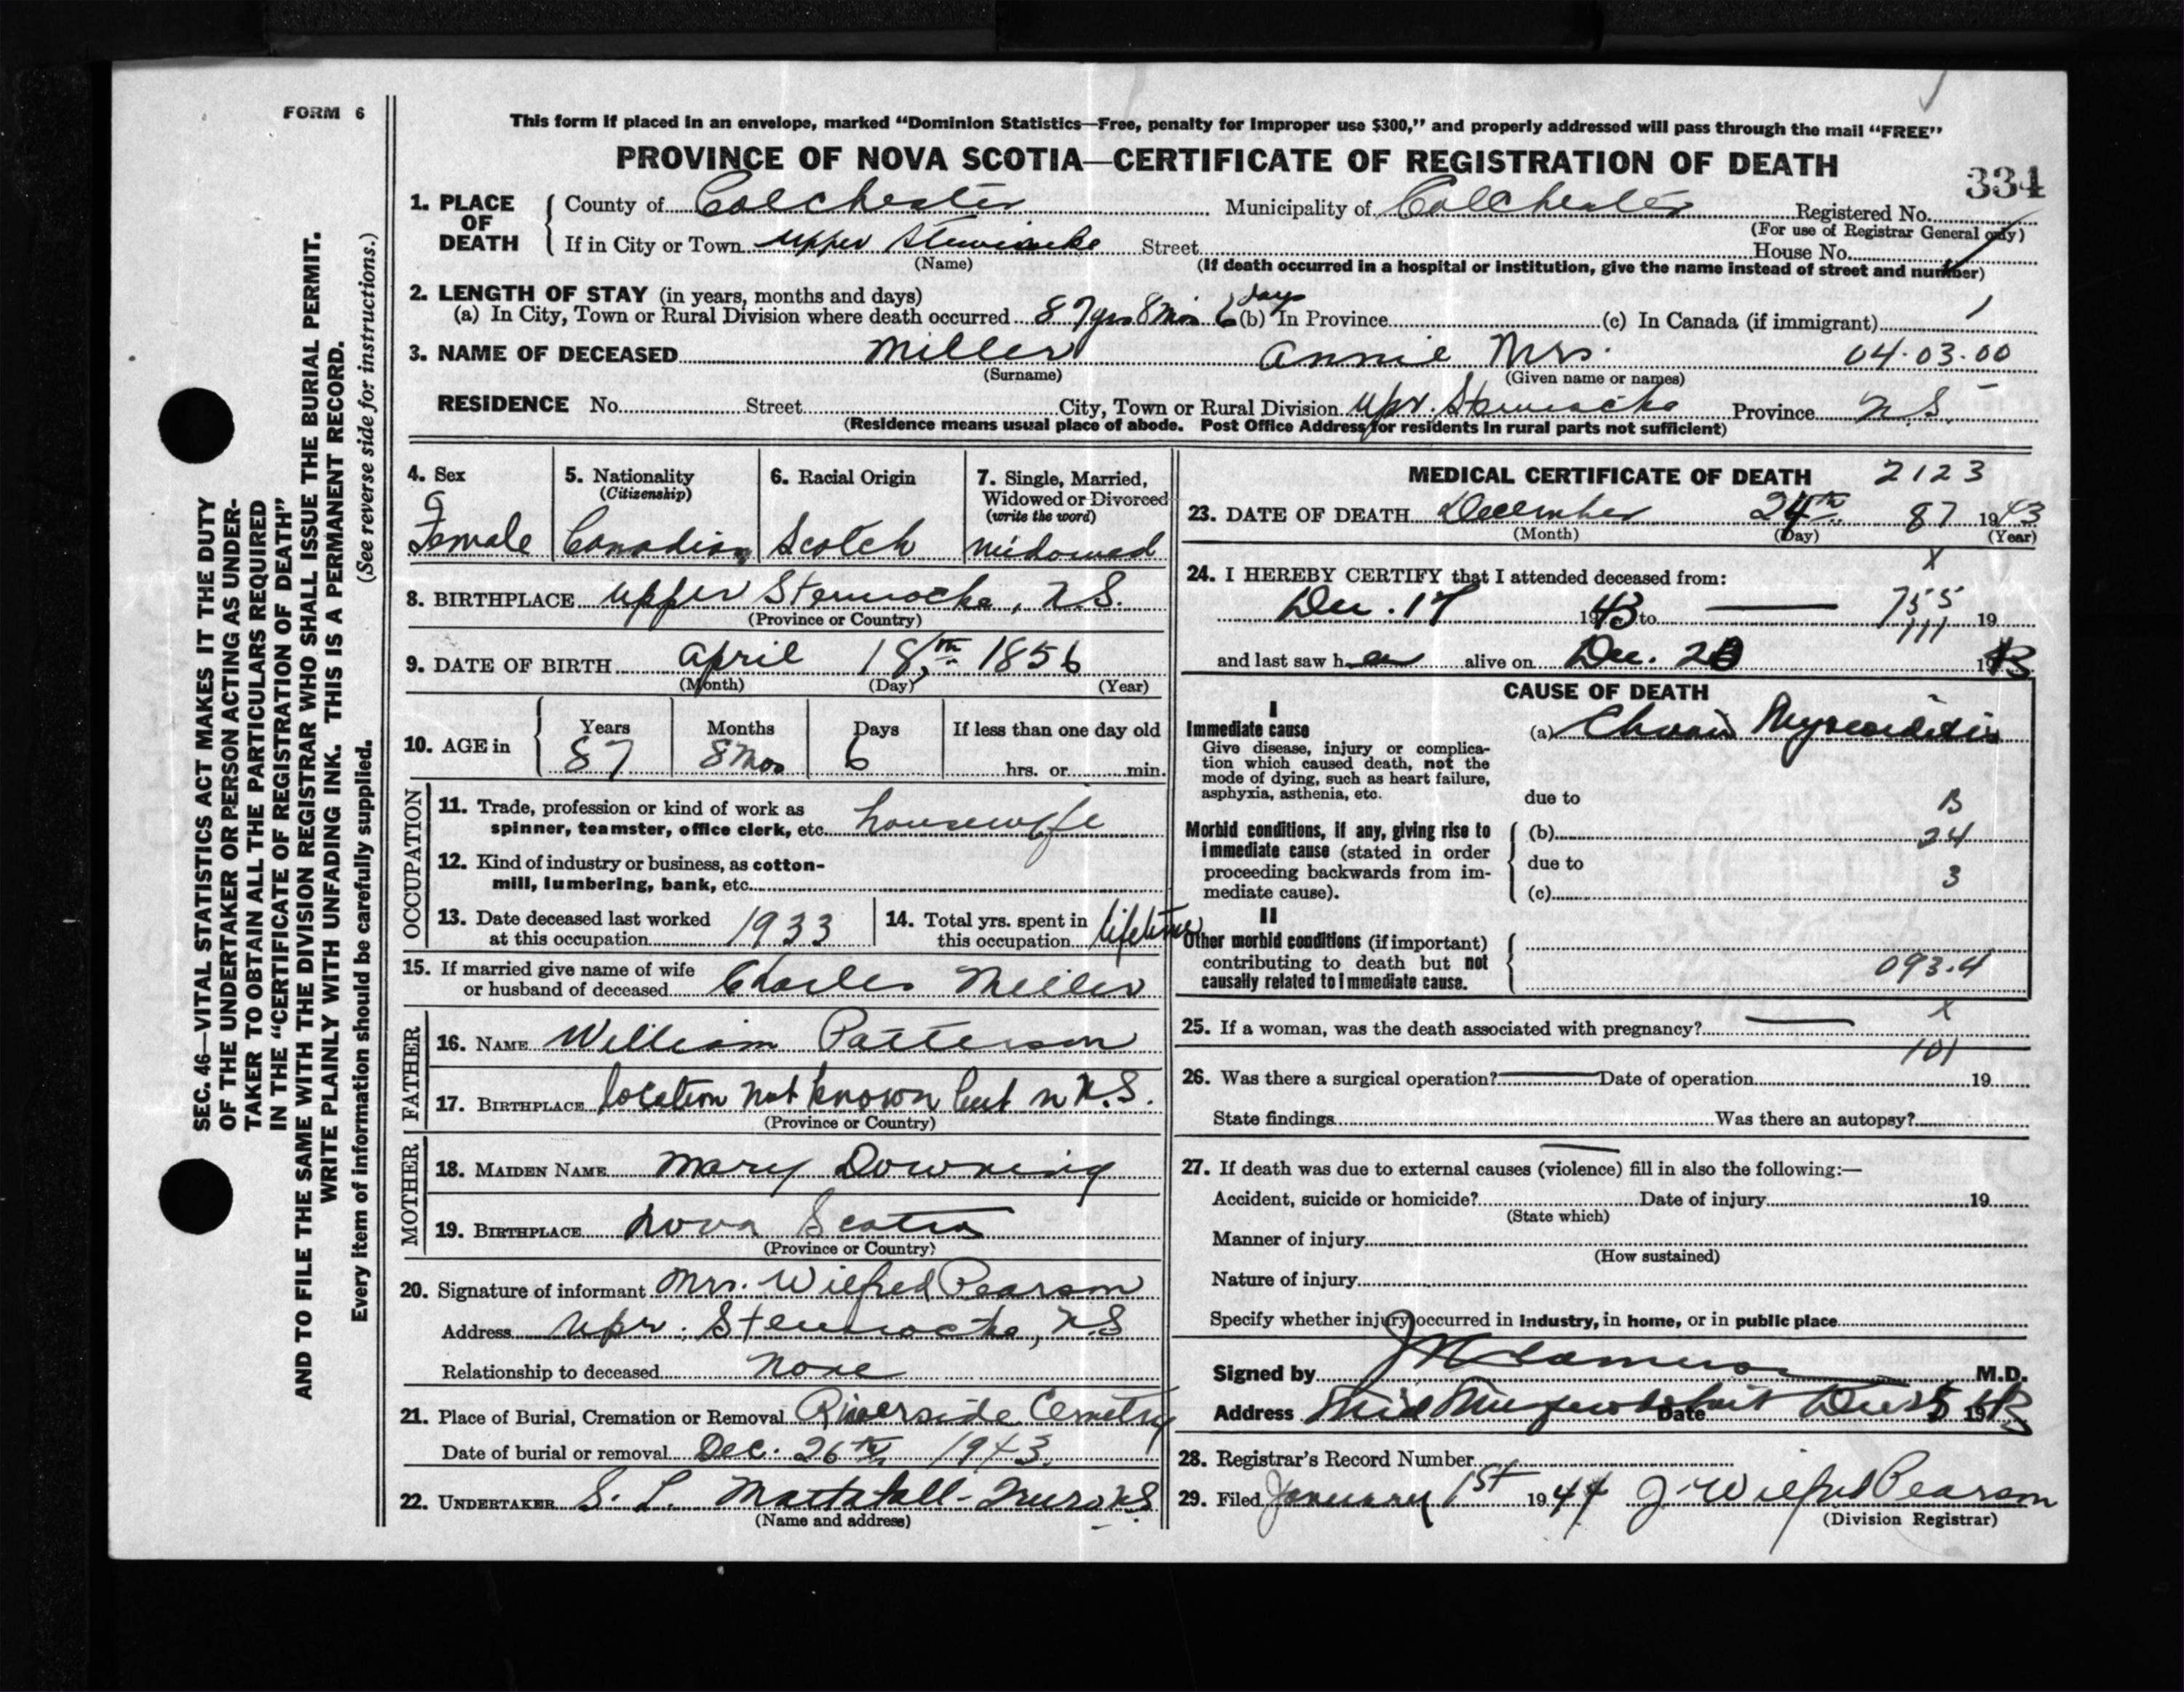 FORM 6
This form if placed in an envelope, marked “Dominion Statistics—Free, penalty for improper use $300,” and properly addressed will pass through the mail “FREE”
PROVINCE OF NOVA SCOTIA—CERTIFICATE OF REGISTRATION OF DEATH
334
1. PLACE OF DEATH County of Colchester Municipality of Colchester Registered No.
(For use of Registrar General only)
If in City or Town Upper Stewiacke Street House No.
(Name) (If death occurred in a hospital or institution, give the name instead of street and number)
2. LENGTH OF STAY (in years, months and days)
(a) In City, Town or Rural Division where death occurred 87 yrs 8 Mos 6 days (b) In Province (c) In Canada (if immigrant)
3. NAME OF DECEASED Miller Annie Mrs. 04.03.00
(Surname) (Given name or names)
RESIDENCE No. Street City, Town or Rural Division Upr. Stewiacke Province N.S.
(Residence means usual place of abode. Post Office Address for residents in rural parts not sufficient)
4. Sex
Female
5. Nationality
(Citizenship)
Canadian
6. Racial Origin
Scotch
7. Single, Married,
Widowed or Divorced
(write the word)
Widowed
8. BIRTHPLACE Upper Stewiacke, N.S.
(Province or Country)
9. DATE OF BIRTH April 18th 1856
(Month) (Day) (Year)
10. AGE in Years Months Days If less than one day old
87 8 Mos 6 hrs. or min.
OCCUPATION
11. Trade, profession or kind of work as
spinner, teamster, office clerk, etc. housewife
12. Kind of industry or business, as cotton-
mill, lumbering, bank, etc.
13. Date deceased last worked
at this occupation 1933
14. Total yrs. spent in
this occupation lifetime
15. If married give name of wife
or husband of deceased Charles Miller
FATHER
16. NAME William Patterson
17. BIRTHPLACE location not known but in N.S.
(Province or Country)
MOTHER
18. MAIDEN NAME Mary Downing
19. BIRTHPLACE Nova Scotia
(Province or Country)
20. Signature of informant Mrs. Wilfred Pearson
Address Upr. Stewiacke, N.S
Relationship to deceased none
21. Place of Burial, Cremation or Removal Riverside Cemetry
Date of burial or removal Dec. 26th 1943.
22. UNDERTAKER S. L. Mattatall - Truro N.S.
(Name and address)
MEDICAL CERTIFICATE OF DEATH 2123
23. DATE OF DEATH December 24th 87 1943
(Month) (Day) (Year)
x
24. I HEREBY CERTIFY that I attended deceased from:
Dec. 17 1943 to 755 19
111
and last saw her alive on Dec. 1943
CAUSE OF DEATH
I
Immediate cause
Give disease, injury or complica-
tion which caused death, not the
mode of dying, such as heart failure,
asphyxia, asthenia, etc.
(a) Chronic Myocarditis
due to B
Morbid conditions, if any, giving rise to
immediate cause (stated in order
proceeding backwards from im-
mediate cause).
(b) 34
due to
(c) 3
II
Other morbid conditions (if important)
contributing to death but not
causally related to immediate cause.
093.4
x
25. If a woman, was the death associated with pregnancy? —
101
26. Was there a surgical operation? — Date of operation 19
State findings Was there an autopsy?
27. If death was due to external causes (violence) fill in also the following:—
Accident, suicide or homicide? Date of injury 19
(State which)
Manner of injury
(How sustained)
Nature of injury
Specify whether injury occurred in industry, in home, or in public place
Signed by M.D.
Address Mid Musquodoboit Date Dec 1943
28. Registrar's Record Number
29. Filed January 1st 1944 J. Wilfred Pearson
(Division Registrar)
SEC. 46—VITAL STATISTICS ACT MAKES IT THE DUTY
OF THE UNDERTAKER OR PERSON ACTING AS UNDER-
TAKER TO OBTAIN ALL THE PARTICULARS REQUIRED
IN THE “CERTIFICATE OF REGISTRATION OF DEATH”
AND TO FILE THE SAME WITH THE DIVISION REGISTRAR WHO SHALL ISSUE THE BURIAL PERMIT.
WRITE PLAINLY WITH UNFADING INK. THIS IS A PERMANENT RECORD.
Every item of information should be carefully supplied. (See reverse side for instructions.)